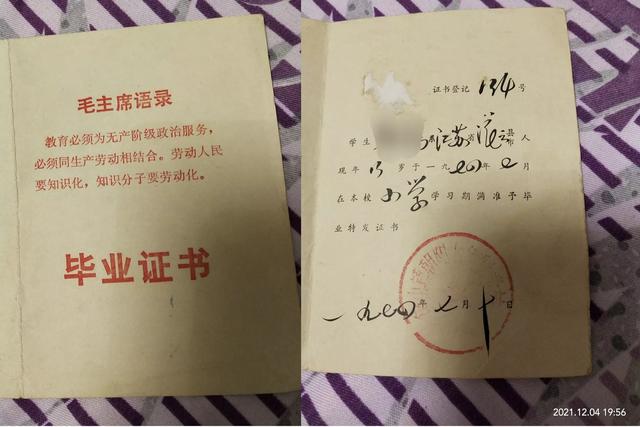 毛主席语录
教育必须为无产阶级政治服务，
必须同生产劳动相结合。劳动人民
要知识化，知识分子要劳动化。
毕业证书
证书登记 134 号
学生 系江苏省 县市人
现年 岁于一九七四年七月
在本校小学学习期满准予毕
业特发证书
一九七四年七月十日
2021.12.04 19:56